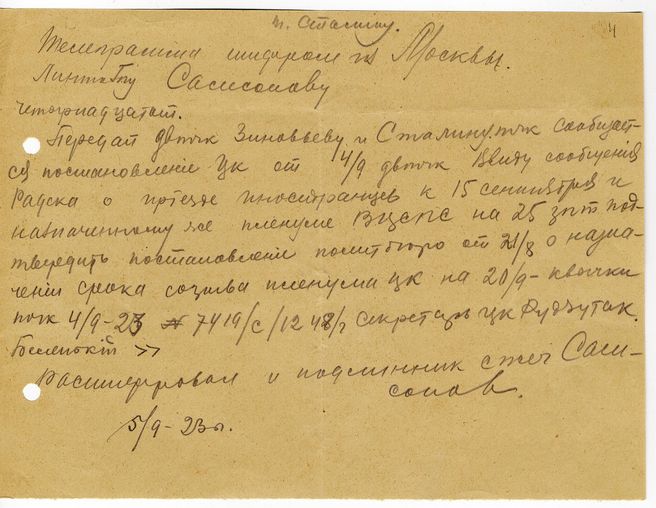 т. Сталину. 4
Телеграмма шифром из Москвы.
Самсонову
Четырнадцатый.
Передай двтчк Зиновьеву и Сталину тчк сообщает-
ся постановление Цк от 4/9 двтчк Ввиду сообщения
Радека о приезде иностранцев к 15 сентября и
назначенному же пленуме ВЦСПС на 25 зпт под-
твердить постановление политбюро от о назна-
чении срока созыва пленума цк на 20/9 - квички
тчк 4/9 - 23 № 7419/с/1248/ш секретарь цк Рудзутак.
>>
Расшифровал и подлинник сжег Сам-
сонов.
5/9 - 23 г.